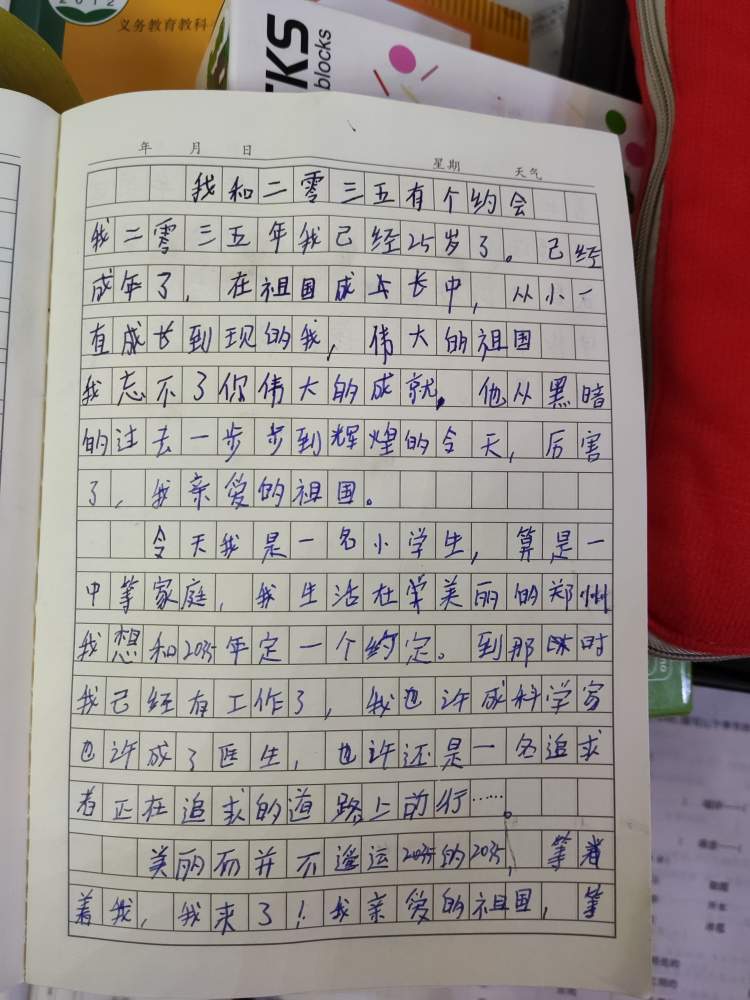 2012
义务教育教科
KS
blocks
年 月 日 星期 天气
我和二零三五有个约会
我二零三五年我已经25岁了。已经
成年了，在祖国成长中，从小一
直成长到现的我，伟大的祖国
我忘不了你伟大的成就，他从黑暗
的过去一步步到辉煌的今天，厉害
了，我亲爱的祖国。
今天我是一名小学生，算是一
中等家庭，我生活在美丽的郑州
我想和2035年定一个约定。到那时
我已经有工作了，我也许成科学家
也许成了医生，也许还是一名追求
者正在追求的道路上的行……。
美丽而并不遥运2035的2035，等着
着我，我来了！我亲爱的祖国，等